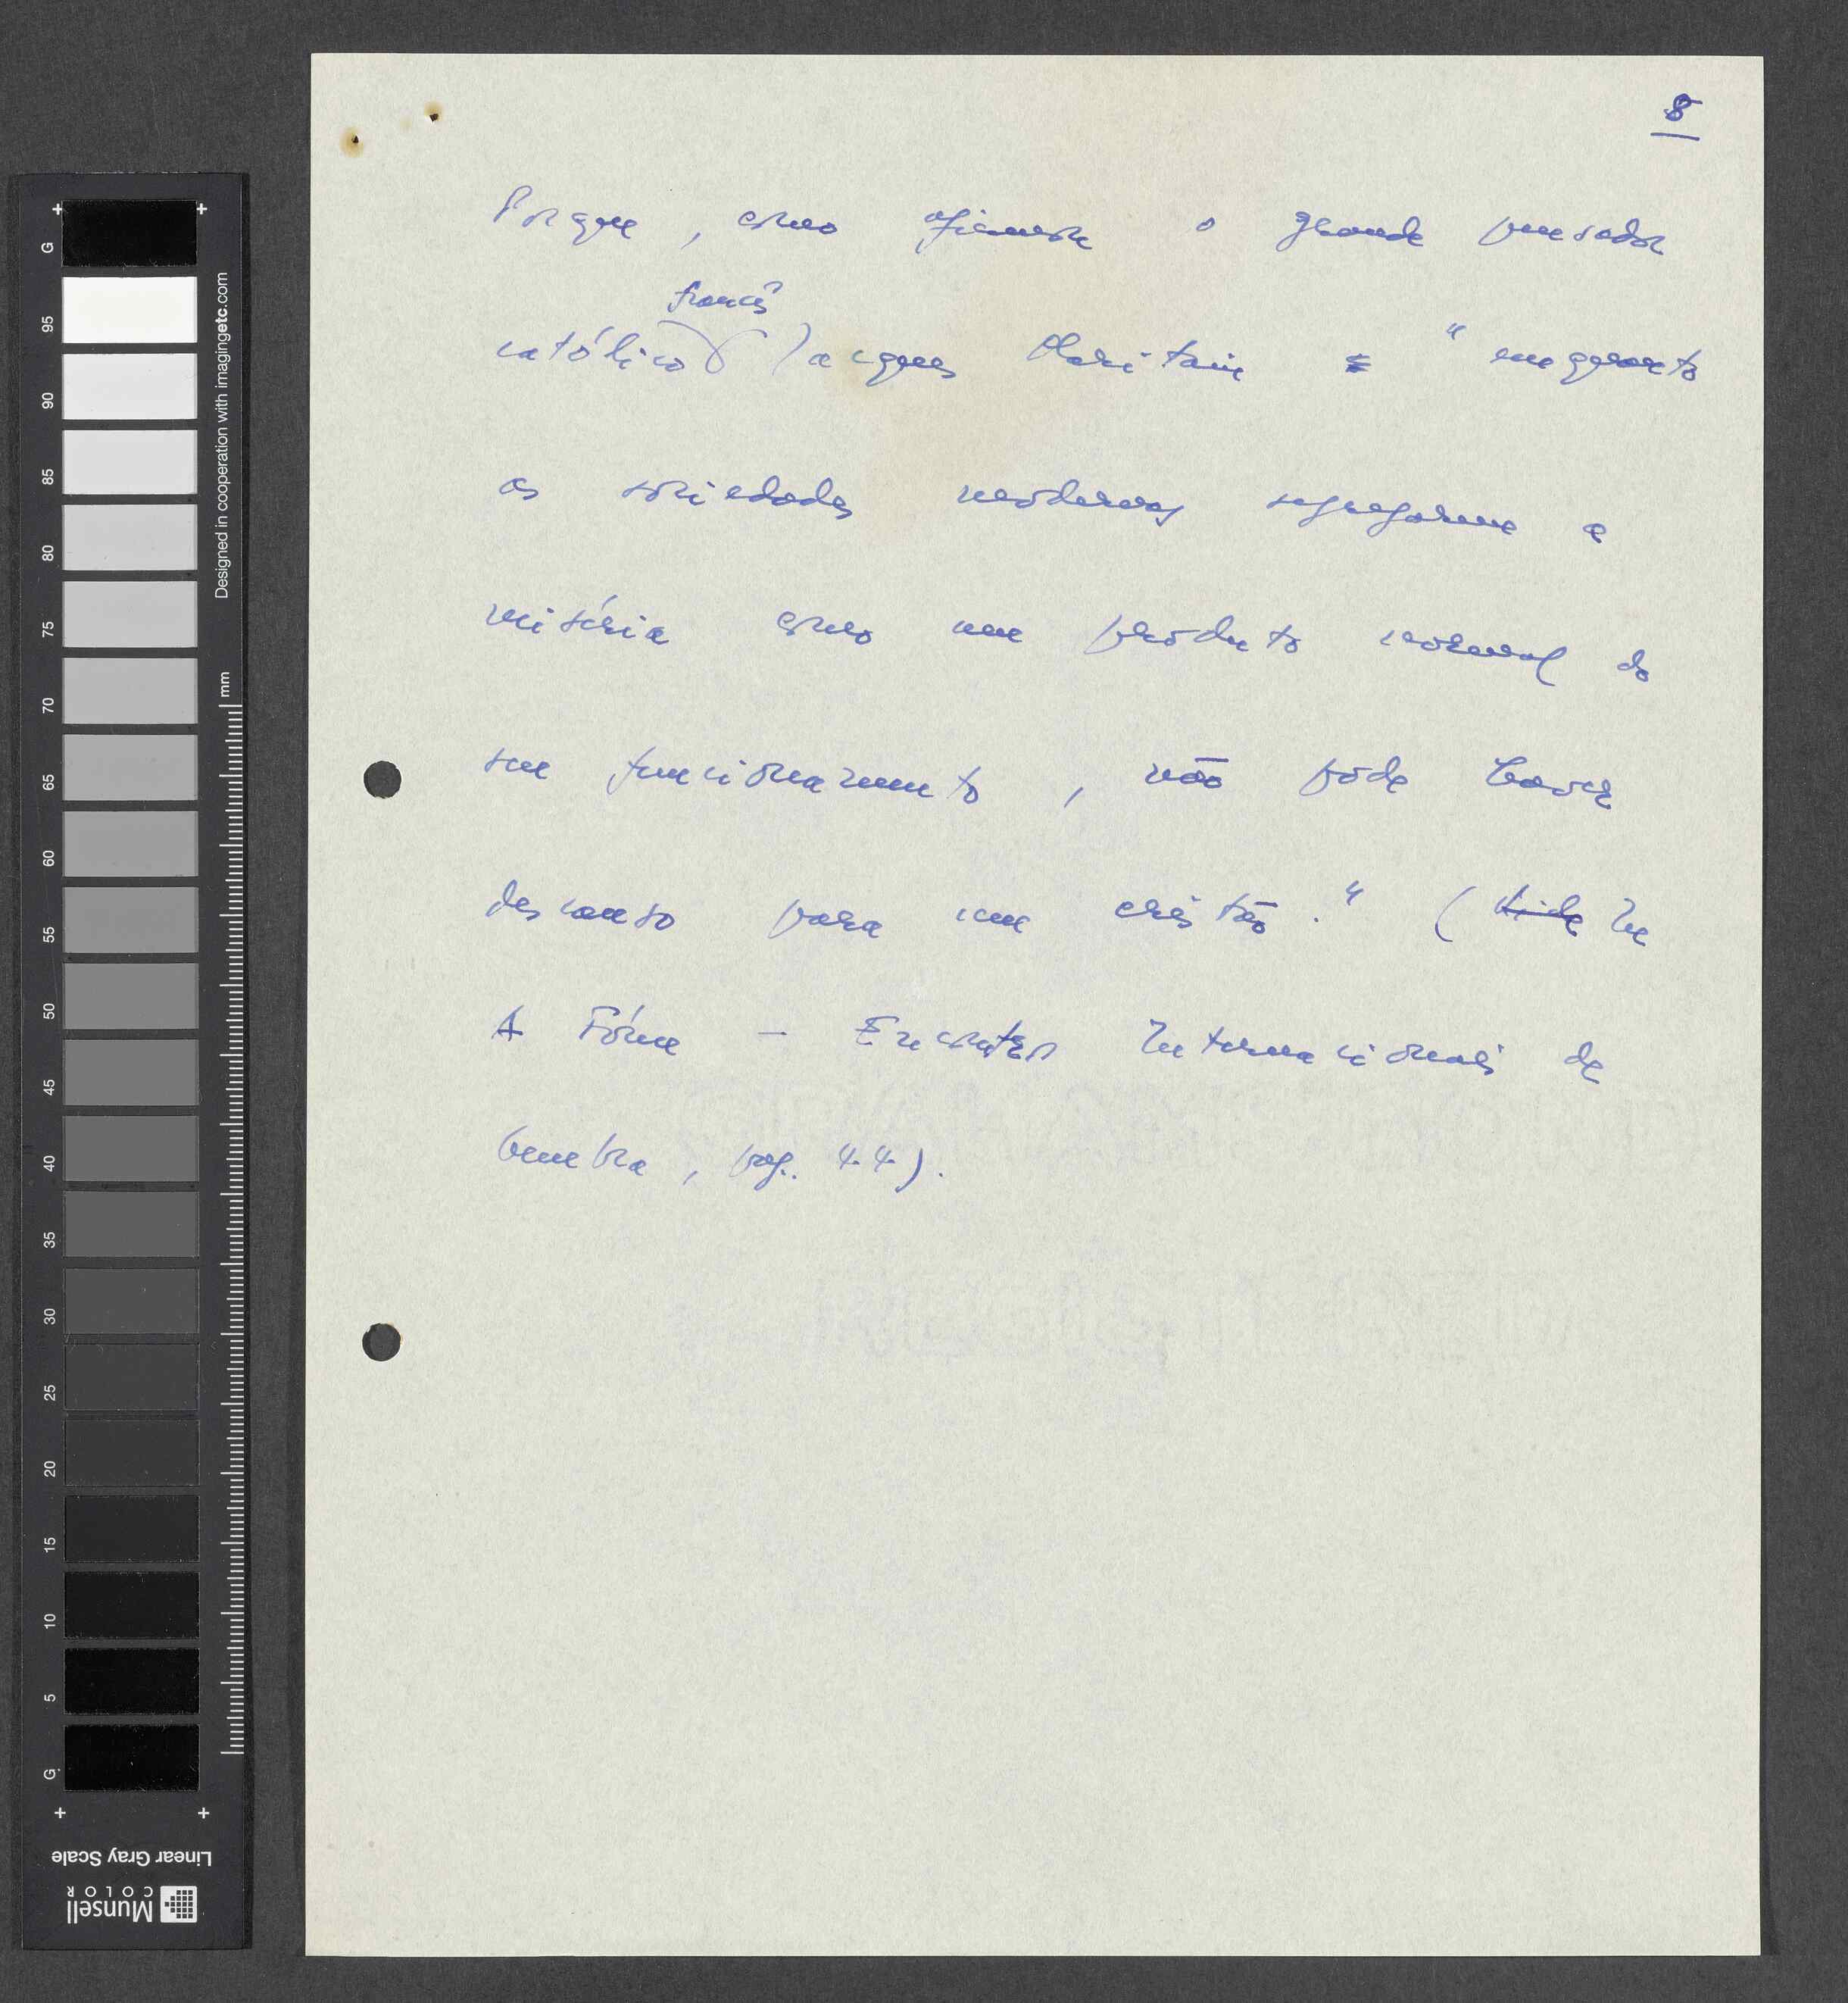 8
Porque, como afirmou o grande pensador
francês
católico Jacques Maritain "enquanto
as sociedades modernas segregarem a
miséria como um produto normal do
seu funcionamento, não pode haver
descanso para um cristão." (In
A Fóme — Encontros Internacionais de
Genebra, pag. 44).
G
95
90
85
80
75
70
65
60
55
50
45
40
35
30
25
20
15
10
5
G
mm
Designed in cooperation with imagingetc.com
Linear Gray Scale
Munsell
COLOR